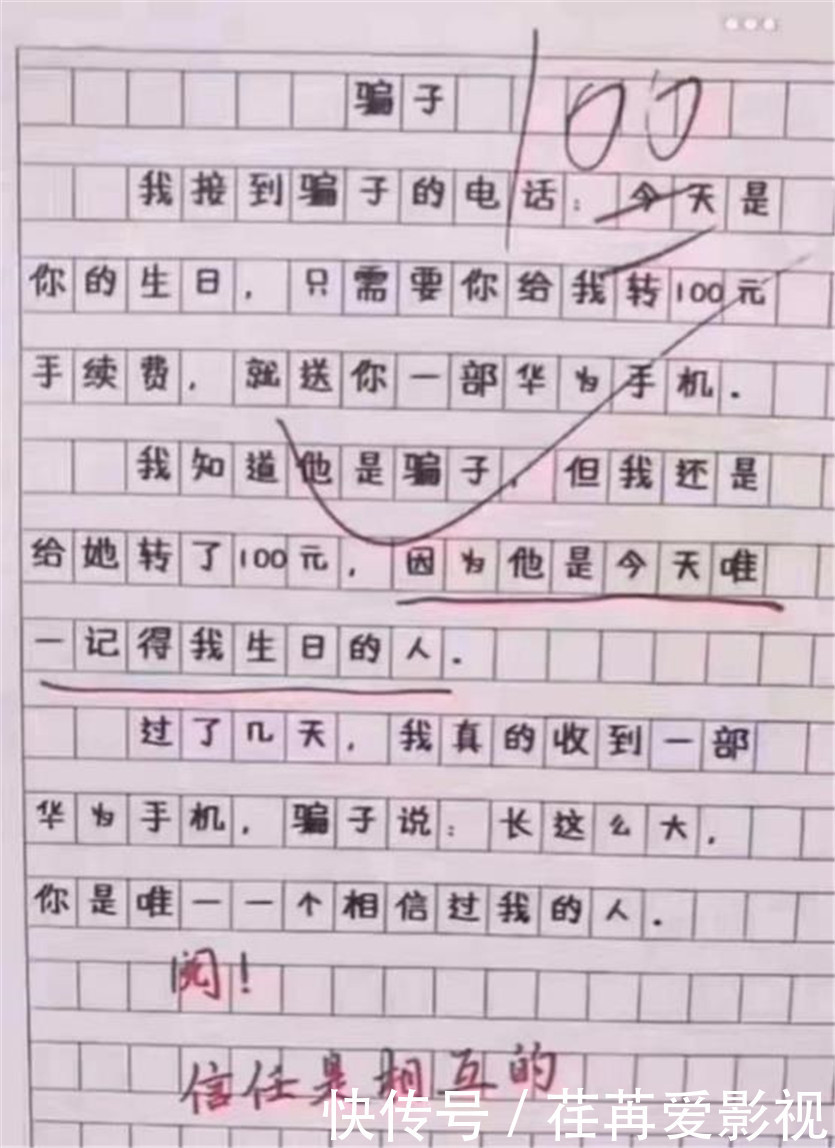 骗子
100
我接到骗子的电话：今天是
你的生日，只需要你给我转100元
手续费，就送你一部华为手机．
我知道他是骗子，但我还是
给她转了100元，因为他是今天唯
一记得我生日的人．
过了几天，我真的收到一部
华为手机，骗子说：长这么大，
你是唯一一个相信过我的人．
阅！
信任是相互的
快传号／荏苒爱影视